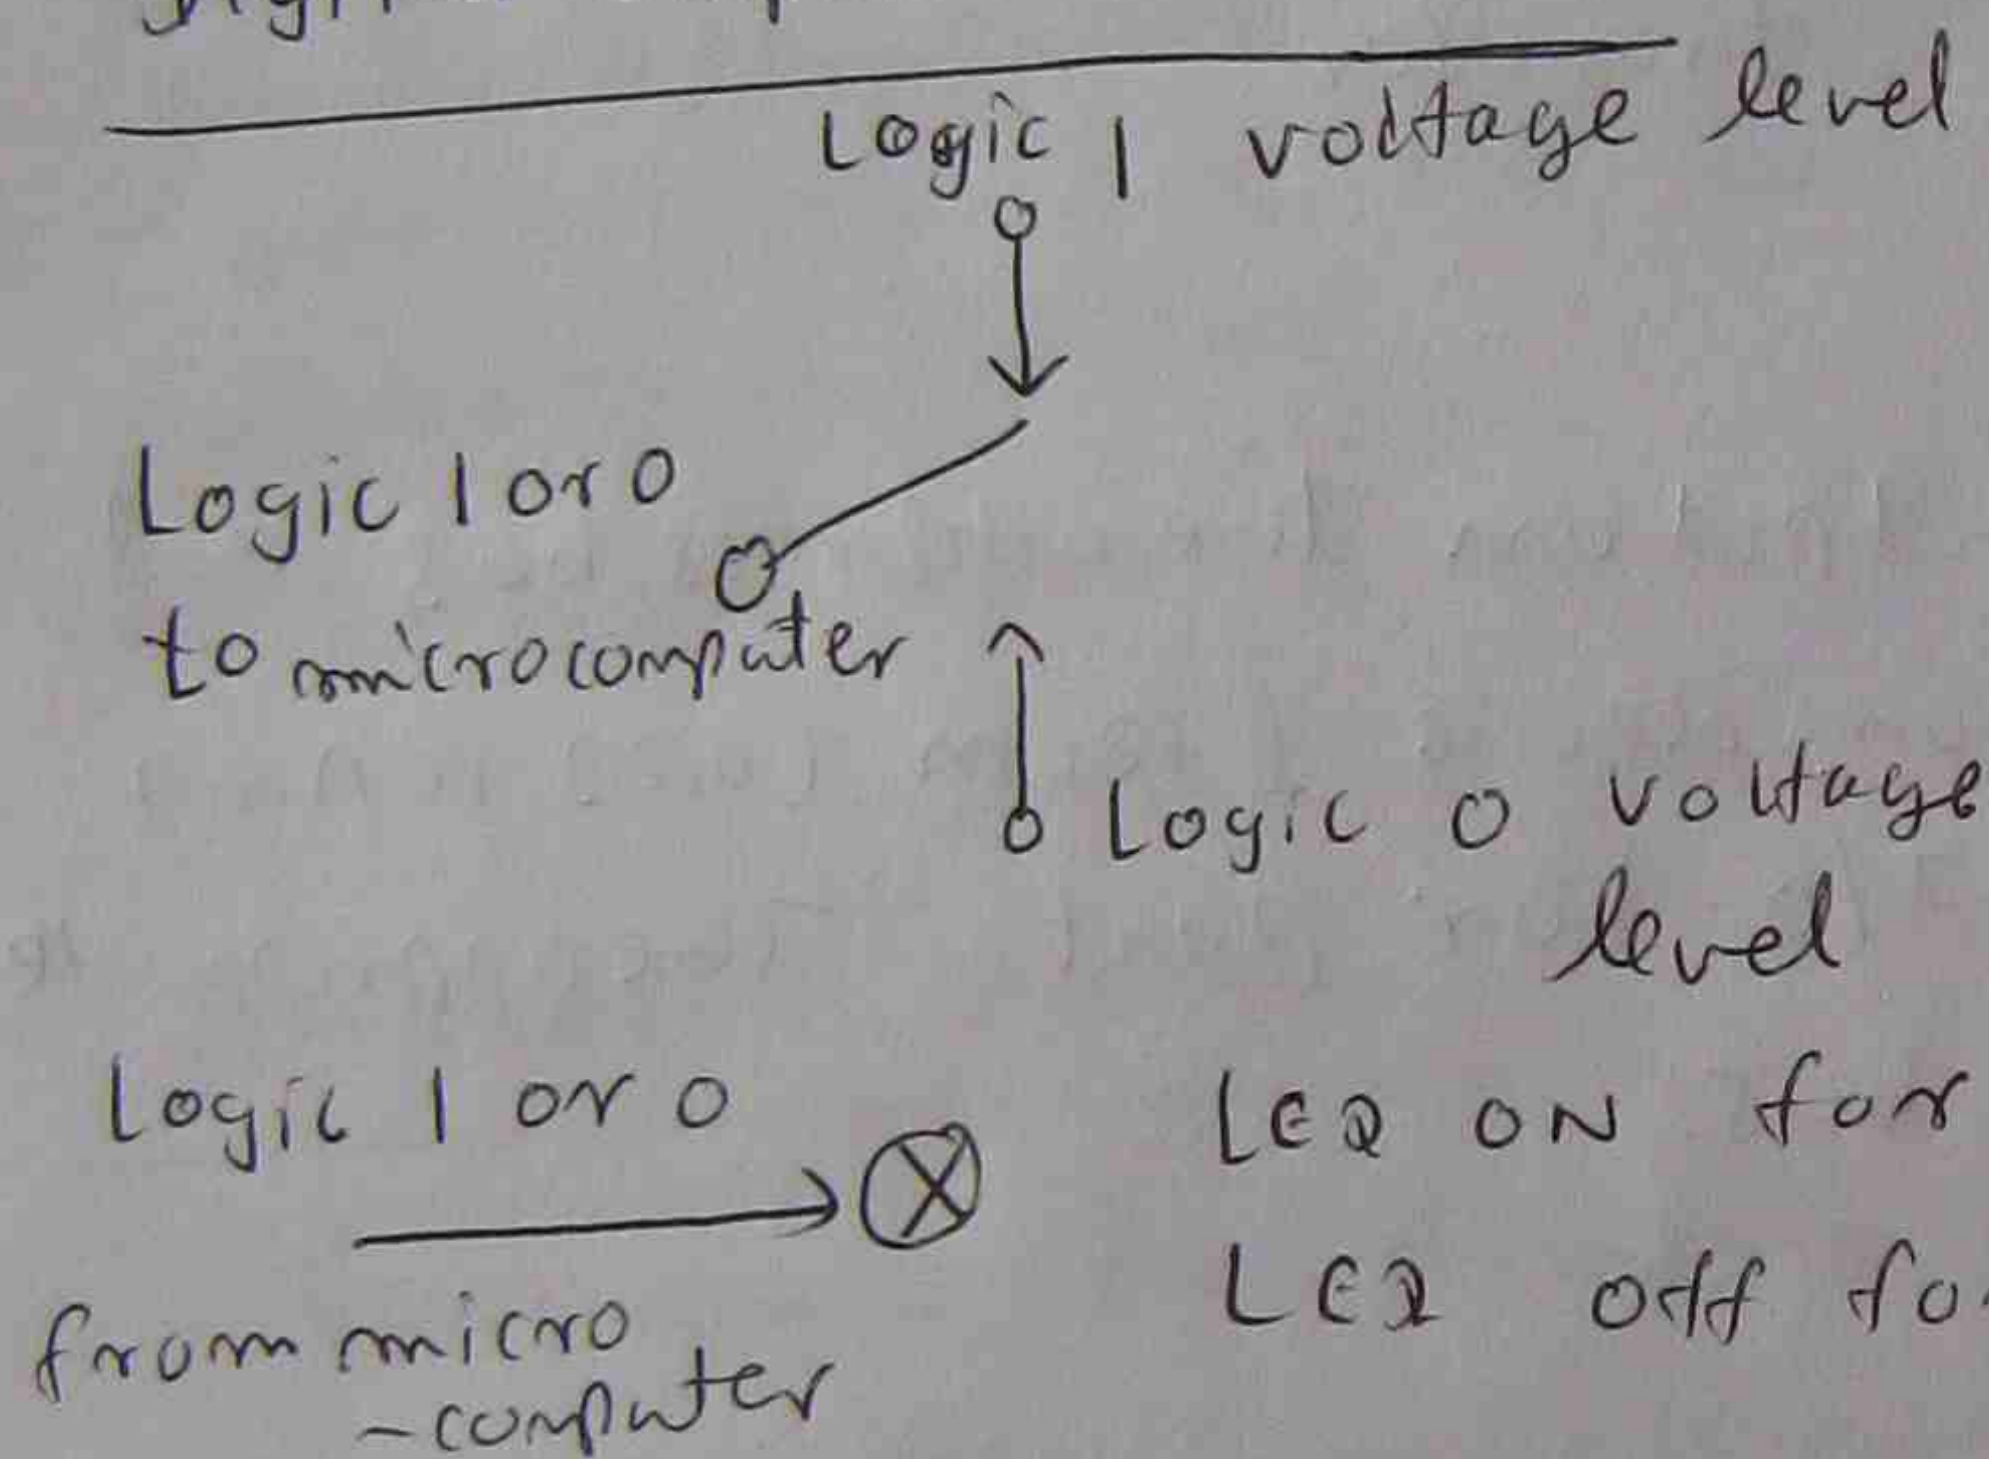 Logic 1 voltage level
Logic 1 or 0
to microcomputer
Logic 0 voltage
level
Logic 1 or 0
LED ON for
from micro
-computer
LED off fo